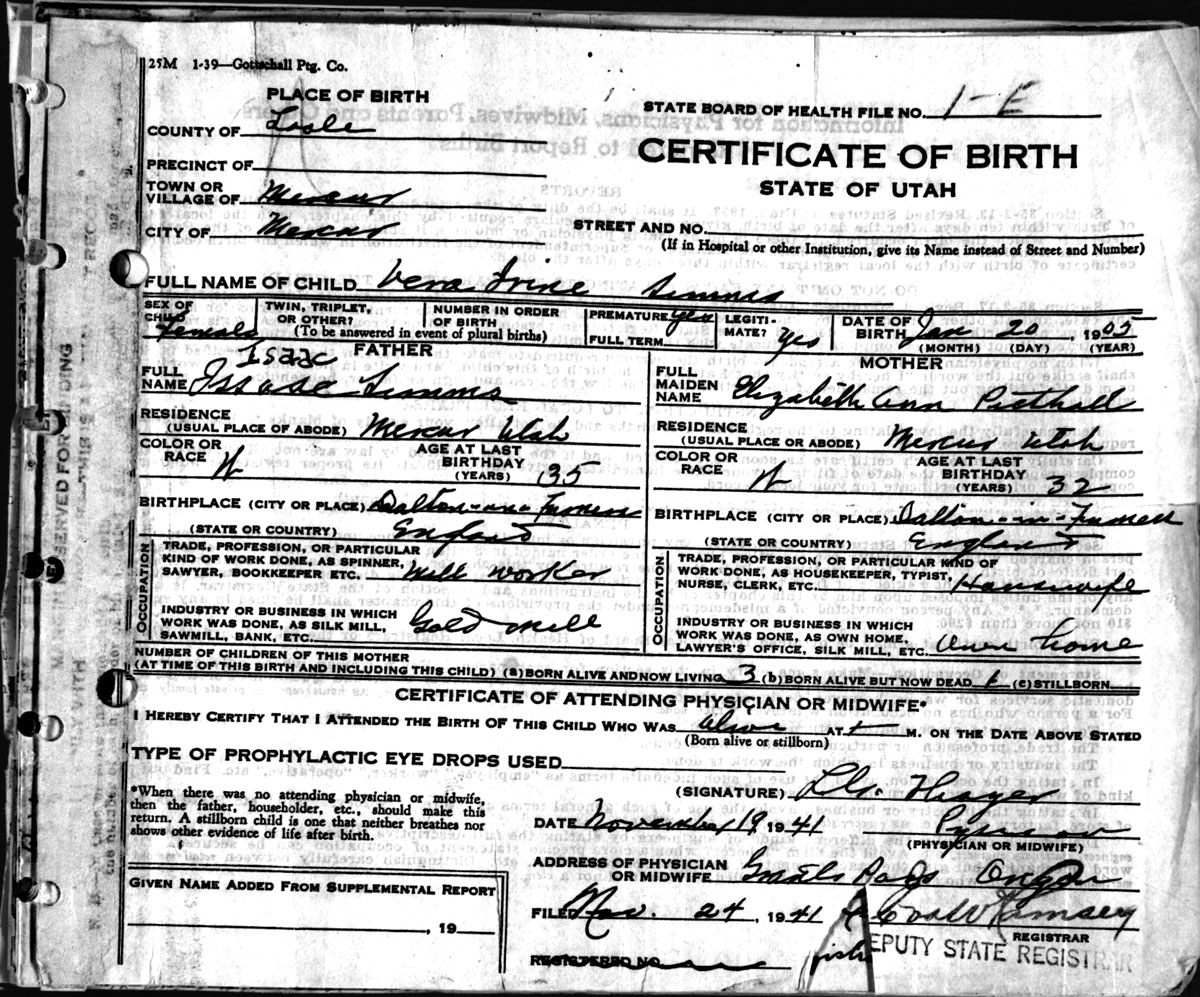 25M 1-39—Gottschall Ptg. Co.
PLACE OF BIRTH
STATE BOARD OF HEALTH FILE NO. 1-E
COUNTY OF
CERTIFICATE OF BIRTH
PRECINCT OF
STATE OF UTAH
TOWN OR
VILLAGE OF Mercur
STREET AND NO.
CITY OF Mercur
(If in Hospital or other Institution, give its Name instead of Street and Number)
FULL NAME OF CHILD Vera Irine Simms
SEX OF CHILD Female
TWIN, TRIPLET, OR OTHER?
NUMBER IN ORDER OF BIRTH
(To be answered in event of plural births)
PREMATURE Yes
FULL TERM
LEGITIMATE? Yes
DATE OF BIRTH Jan 20, 1905
(MONTH) (DAY) (YEAR)
FATHER
Isaac
FULL NAME Issaac Simms
RESIDENCE
(USUAL PLACE OF ABODE) Mercur Utah
COLOR OR RACE W
AGE AT LAST BIRTHDAY (YEARS) 35
BIRTHPLACE (CITY OR PLACE) Dalton-in-Furness
(STATE OR COUNTRY) England
OCCUPATION
TRADE, PROFESSION, OR PARTICULAR
KIND OF WORK DONE, AS SPINNER,
SAWYER, BOOKKEEPER ETC. Mill worker
INDUSTRY OR BUSINESS IN WHICH
WORK WAS DONE, AS SILK MILL,
SAWMILL, BANK, ETC. Gold Mill
MOTHER
FULL MAIDEN NAME Elizabeth Ann
RESIDENCE
(USUAL PLACE OR ABODE) Mercur Utah
COLOR OR RACE W
AGE AT LAST BIRTHDAY (YEARS) 32
BIRTHPLACE (CITY OR PLACE) Dalton-in-Furness
(STATE OR COUNTRY) England
OCCUPATION
TRADE, PROFESSION, OR PARTICULAR KIND OF
WORK DONE, AS HOUSEKEEPER, TYPIST,
NURSE, CLERK, ETC. Housewife
INDUSTRY OR BUSINESS IN WHICH
WORK WAS DONE, AS OWN HOME,
LAWYER'S OFFICE, SILK MILL, ETC. Own home
NUMBER OF CHILDREN OF THIS MOTHER
(AT TIME OF THIS BIRTH AND INCLUDING THIS CHILD) (a) BORN ALIVE AND NOW LIVING 3 (b) BORN ALIVE BUT NOW DEAD 1 (c) STILLBORN
CERTIFICATE OF ATTENDING PHYSICIAN OR MIDWIFE*
I HEREBY CERTIFY THAT I ATTENDED THE BIRTH OF THIS CHILD WHO WAS Alive AT M. ON THE DATE ABOVE STATED
(Born alive or stillborn)
TYPE OF PROPHYLACTIC EYE DROPS USED
(SIGNATURE)
*When there was no attending physician or midwife,
then the father, householder, etc., should make this
return. A stillborn child is one that neither breathes nor
shows other evidence of life after birth.
DATE November 19, 1941
(PHYSICIAN OR MIDWIFE)
ADDRESS OF PHYSICIAN
OR MIDWIFE Grants Pass Oregon
GIVEN NAME ADDED FROM SUPPLEMENTAL REPORT
, 19
FILED Nov. 24, 1941 Ramsey
REGISTRAR
DEPUTY STATE REGISTRAR
REGISTERED NO.